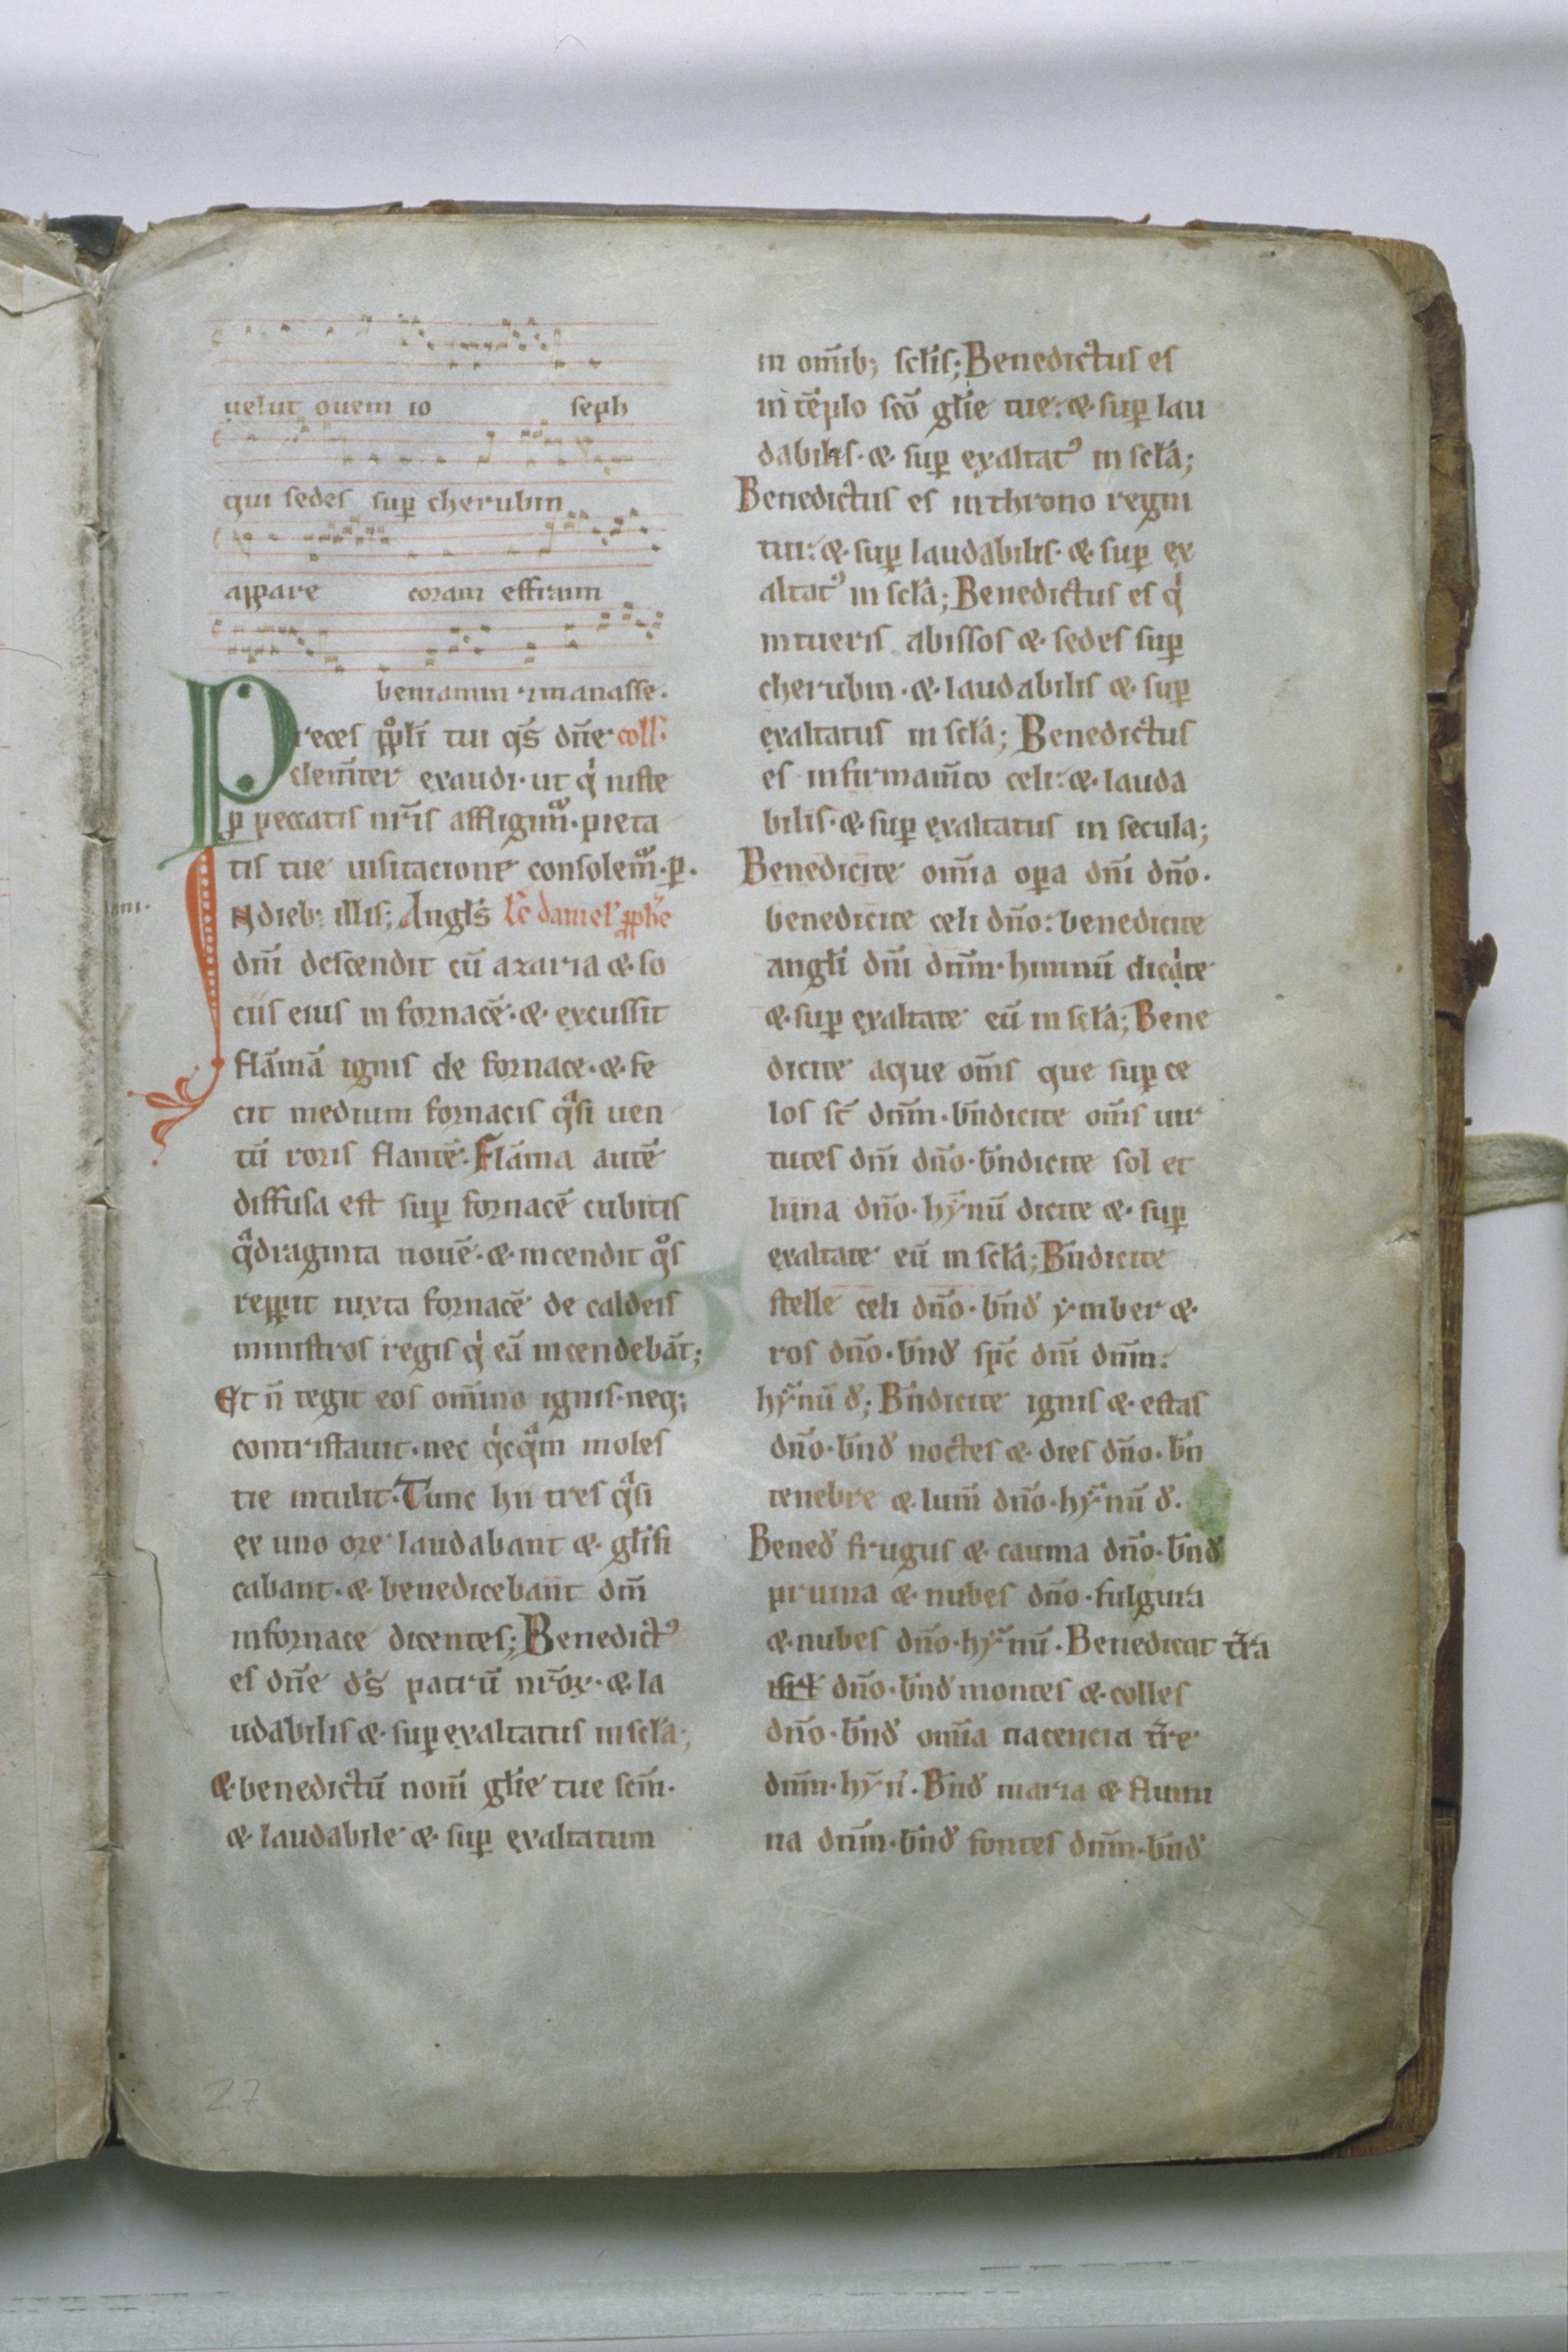 uelut ouem io seph
qui sedes sup̄ cherubin
appare coram effraim
beniamin ⁊ manasse.
Preces ppl̄i tui qs̄ dn̄e coll̄.
clem̄ter exaudi. ut qͥ iuste
p̄ peccatis nr̄is affligim᷒. pieta
tis tue uisitacione consolem᷒. p̄.
In dieb; illis; Angl̄s Lc̄ danielˢ pph̄e
dn̄i descendit cū azaria & so
ciis eius in fornacē. & excussit
flāmā ignis de fornace. & fe
cit medium fornacis qͣsi uen
tū roris flantē. Flāma autē
diffusa est sup̄ fornacē cubitis
qͣdraginta nouē. & incendit qͦs
repp̄it iuxta fornacē de caldeis
ministros regis qͥ eā incendebāt;
Et n̄ tegit eos om̄ino ignis. neq;
contristauit. nec qͥcqͣm moles
tie intulit. Tunc hii tres qͣsi
ex uno ore laudabant & gl̄ifi
cabant. & benedicebant dm̄
in fornace dicentes; Benedict᷒
es dn̄e ds̄ patrū nr̄oꝝ. & la
udabilis & sup̄ exaltatus in scl̄a;
& benedictū nom̄ gl̄ie tue scm̄.
& laudabile & sup̄ exaltatum
in om̄ib; scl̄is; Benedictus es
in tēplo scō gl̄ie tue: & sup̄ lau
dabilis. & sup̄ exaltat᷒ in scl̄a;
Benedictus es in throno regni
tui: & sup̄ laudabilis. & sup̄ ex
altat᷒ in scl̄a; Benedictus es qͥ
intueris abissos & sedes sup̄
cherubin. & laudabilis & sup̄
exaltatus in scl̄a; Benedictus
es in firmam̄to celi: & lauda
bilis. & sup̄ exaltatus in secula;
Benedicite om̄ia op̄a dn̄i dn̄o.
benedicite celi dn̄o: benedicite
angl̄i dn̄i dn̄m. himnū dicite
& sup̄ exaltate eū in scl̄a; Bene
dicite aque om̄s que sup̄ ce
los st̄ dn̄m. bn̄dicite om̄s uir
tutes dn̄i dn̄o. bn̄dicite sol et
luna dn̄o. hȳnū dicite & sup̄
exaltate eū in scl̄a; Bn̄dicite
stelle celi dn̄o. bn̄d ẏmber &
ros dn̄o. bn̄d spc̄ dn̄i dn̄m:
hȳnū d̄; Bn̄dicite ignis & estas
dn̄o. bn̄d noctes & dies dn̄o. bn̄
tenebre & lum̄ dn̄o. hȳnū d̄.
Bened̄ frugus & cauma dn̄o. bn̄d
pruina & nubes dn̄o. fulgura
& nubes dn̄o. hȳnū. Benedicat tr̄a
dn̄o. bn̄d montes & colles
dn̄o. bn̄d om̄ia nacencia tr̄e
dn̄m. hȳn̄. Bn̄d maria & flumi
na dn̄m. bn̄d fontes dn̄m. bn̄d
27